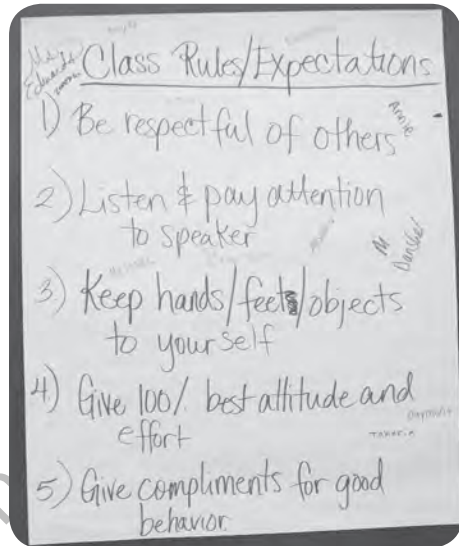 Ms. Edwards
Class Rules/Expectations
1) Be respectful of others
Annie
2) Listen & pay attention
to speaker
3) Keep hands/feet/objects
to yourself
4) Give 100% best attitude and
effort
5) Give compliments for good
behavior.